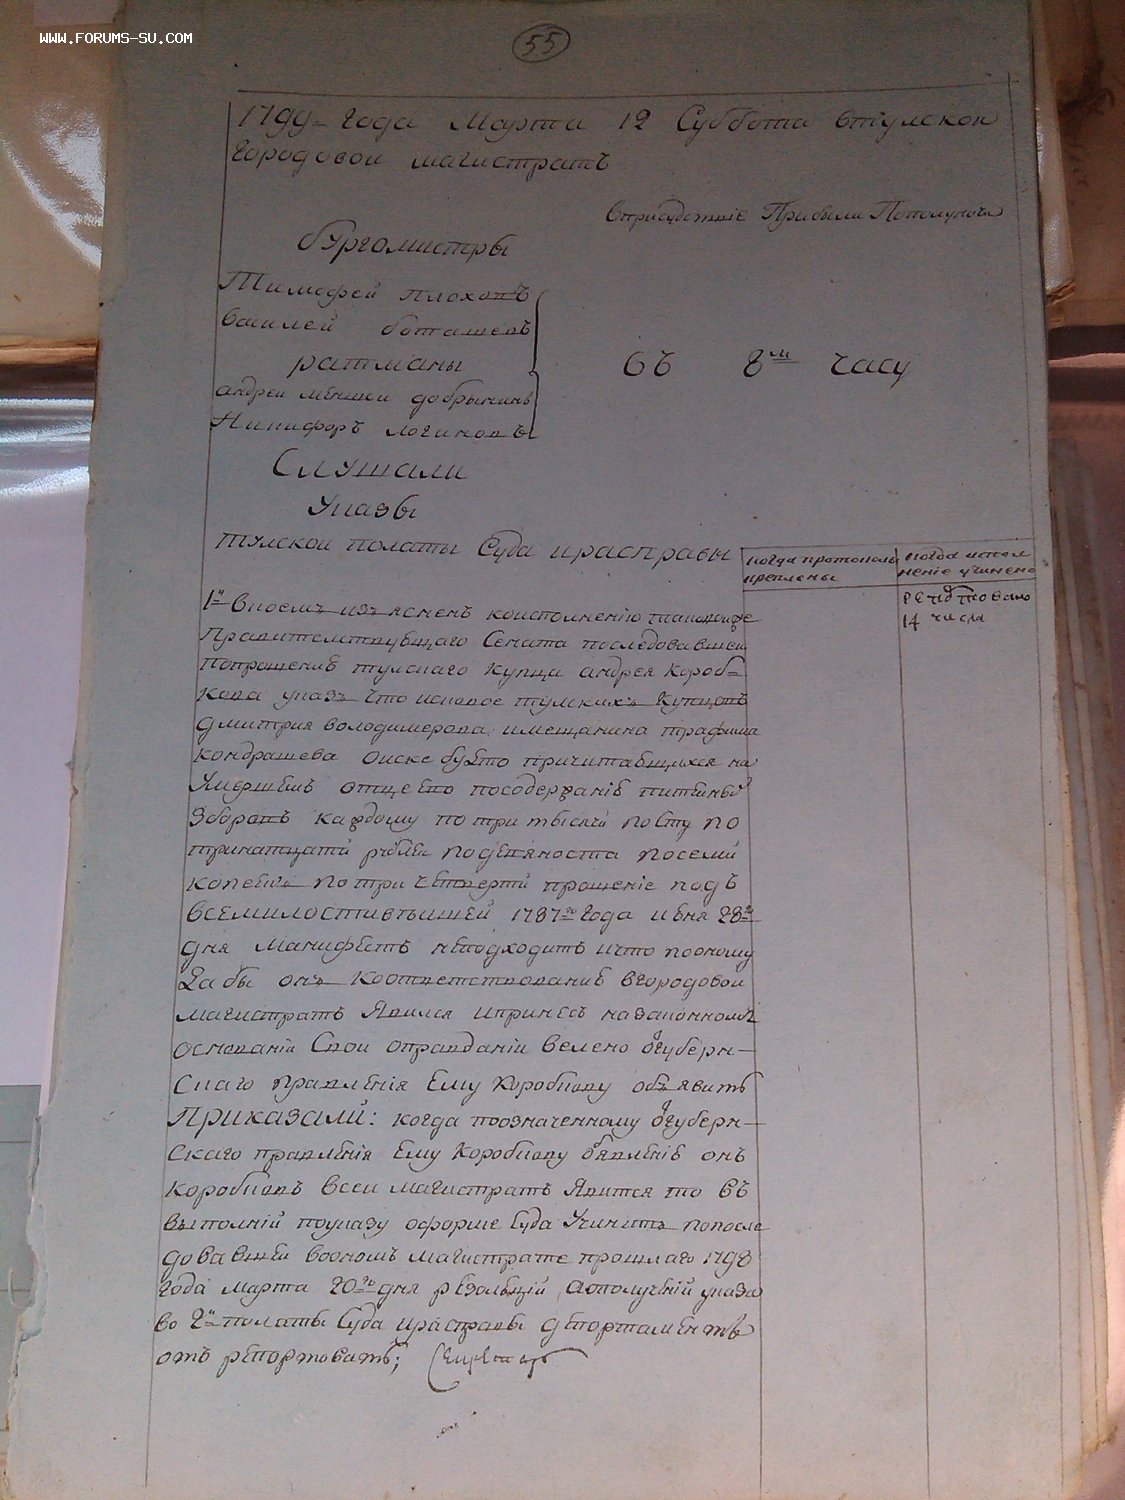 WWW.FORUMS-SU.COM
55
1799 года Марта 12 Суббота втулскои
городовои магистратъ
вприсудствіе Прибыли Пополуночи
бургомистры
Тимофей плоховъ
василей боташевъ
ратманы
андреи меншеи добрынинъ
Никифоръ логиновъ
въ 8м часу
Слушали
Указы
тулскои полаты Суда ирасправы
когда протоколы
креплены
когда испол
нение учинено
репортовано
14 числа
1й вкоемъ изъясненъ коисполнению
Правителствующаго Сената последовавшеи
попрошению тулскаго купца андрея короб-
кова указъ что исковое тулскихъ купцовъ
дмитрия володимерова имещанина трафима
кондрашева оиске будто причитающихся на
умершемъ отце ево посодержанію питейныхъ
зборовъ каждому по три тысячи посту по
тринатцати рублеи подевяноста посеми
копеекъ потри четверти прошение подъ
всемилостивейшей 1787го года июня 28го
дня Манифестъ неподходитъ ичто пооному
дабы онъ коответствованию вгородовои
магистратъ явился ипринесъ назаконномъ
основании свои оправдании велено отгуберн-
скаго правления ему коробкову объявить
Приказали: когда поозначенному отгуберн-
скаго правления ему коробкову объявлению онъ
коробковъ всеи магистратъ явится то въ
выполнии поуказу оформе суда учинить попосле
довавшеи воономъ магистрате прошлаго 1798
года марта 20го дня резолюции аополучении указа
во 2й полаты Суда ирасправы департаментъ
отъ репортовать; Секретарь